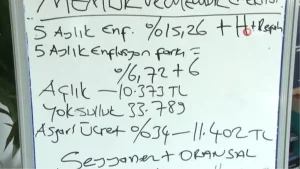 5 Aylık Enf. %15,26 + H + Refah
5 Aylık Enflasyon farkı =
%6,72 + 6
Açlık — 10.373 TL
Yoksulluk 33.789
Asgari Ücret %34 — 11.402 TL
Seyyanen + ORANSAL